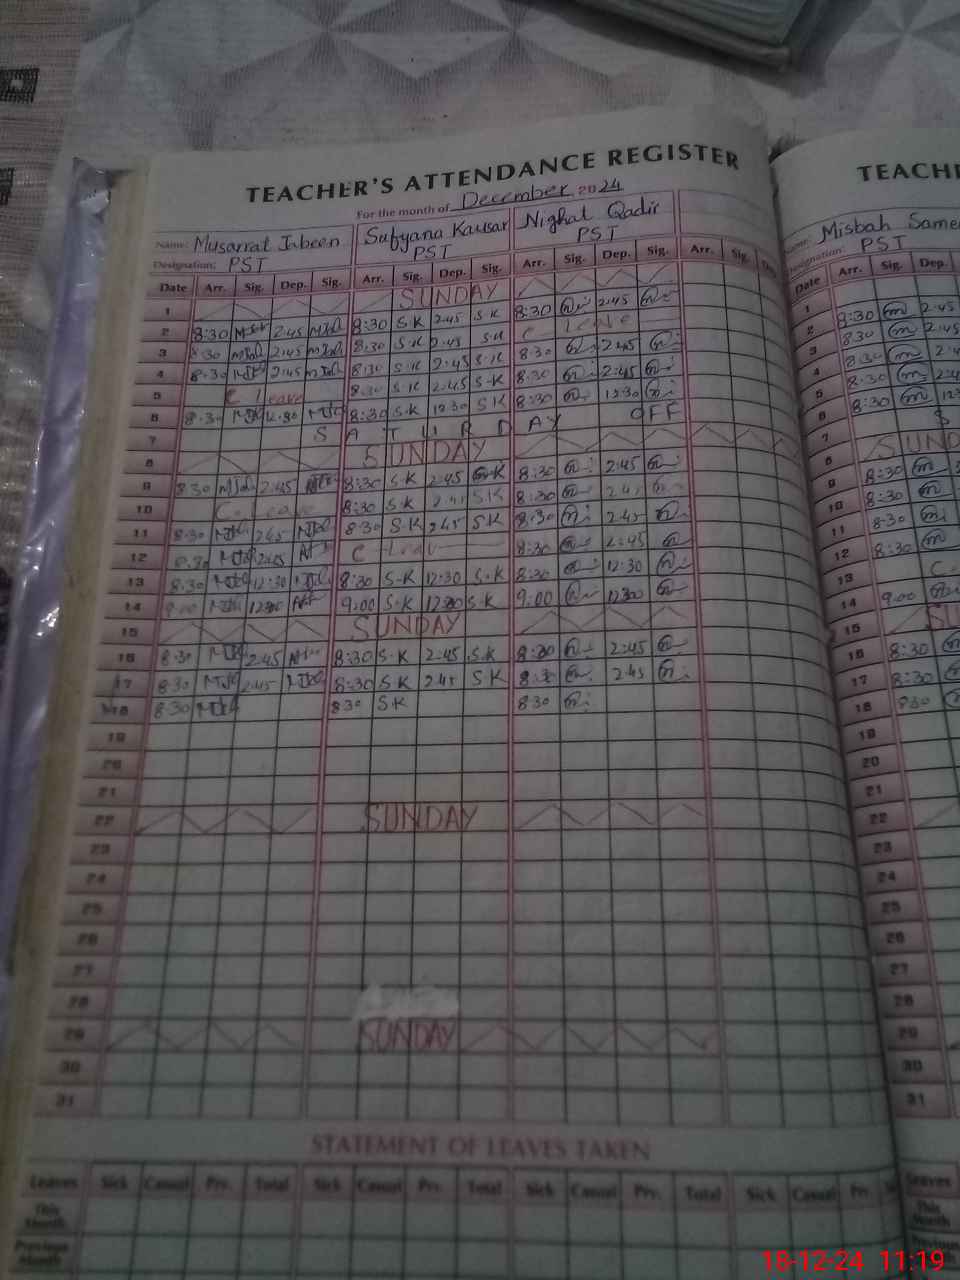 TEACHER'S ATTENDANCE REGISTER
For the month of December 2024
Name: Musarrat Jabeen Sufyana Kausar Nighat Qadir
Designation: PST PST PST
Date Arr. Sig. Dep. Sig. Arr. Sig. Dep. Sig. Arr. Sig. Dep. Sig. Arr. Sig. Dep.
1 SUNDAY
2 8:30 2:45 8:30 S.K 2:45 S.K 8:30 2:45
3 8:30 2:45 8:30 S.K 2:45 S.K C Leave
4 8:30 2:45 8:30 S.K 2:45 S.K 8:30 2:45
5 C Leave 8:30 S.K 2:45 S.K 8:30 2:45
6 8:30 12:30 8:30 S.K 12:30 S.K 8:30 12:30
7 SATURDAY OFF
8 SUNDAY
9 8:30 2:45 8:30 S.K 2:45 8:30 2:45
10 C. Leave 8:30 S.K 2:45 S.K 8:30 2:45
11 8:30 2:45 8:30 S.K 2:45 S.K 8:30 2:45
12 8:30 2:45 C Leav 8:30 2:45
13 8:30 12:30 8:30 S.K 12:30 S.K 8:30 12:30
14 9:00 12:30 9:00 S.K 12:30 S.K 9:00 12:30
15 SUNDAY
16 8:30 2:45 8:30 S.K 2:45 S.K 8:30 2:45
17 8:30 2:45 8:30 S.K 2:45 S.K 8:30 2:45
18 8:30 8:30 S.K 8:30
19
20
21
22 SUNDAY
23
24
25
26
27
28
29 SUNDAY
30
31
STATEMENT OF LEAVES TAKEN
Leaves Sick Casual Prv. Total Sick Casual Prv. Total Sick Casual Prv. Total Sick Casual Prv.
This Month
Previous Month
TEACH
Name: Misbah
Designation: PST
Arr. Sig. Dep.
1
2 8:30 2:45
3 8:30 2:45
4 8:30
5 8:30
6 8:30
7 S
8 SUND
9 8:30
10 8:30
11 8:30
12 8:30
13 C.
14 9:00
15 SU
16 8:30
17 8:30
18 8:30
19
20
21
22
23
24
25
26
27
28
29
30
31
Leaves
This Month
Previous Month
18-12-24 11:19